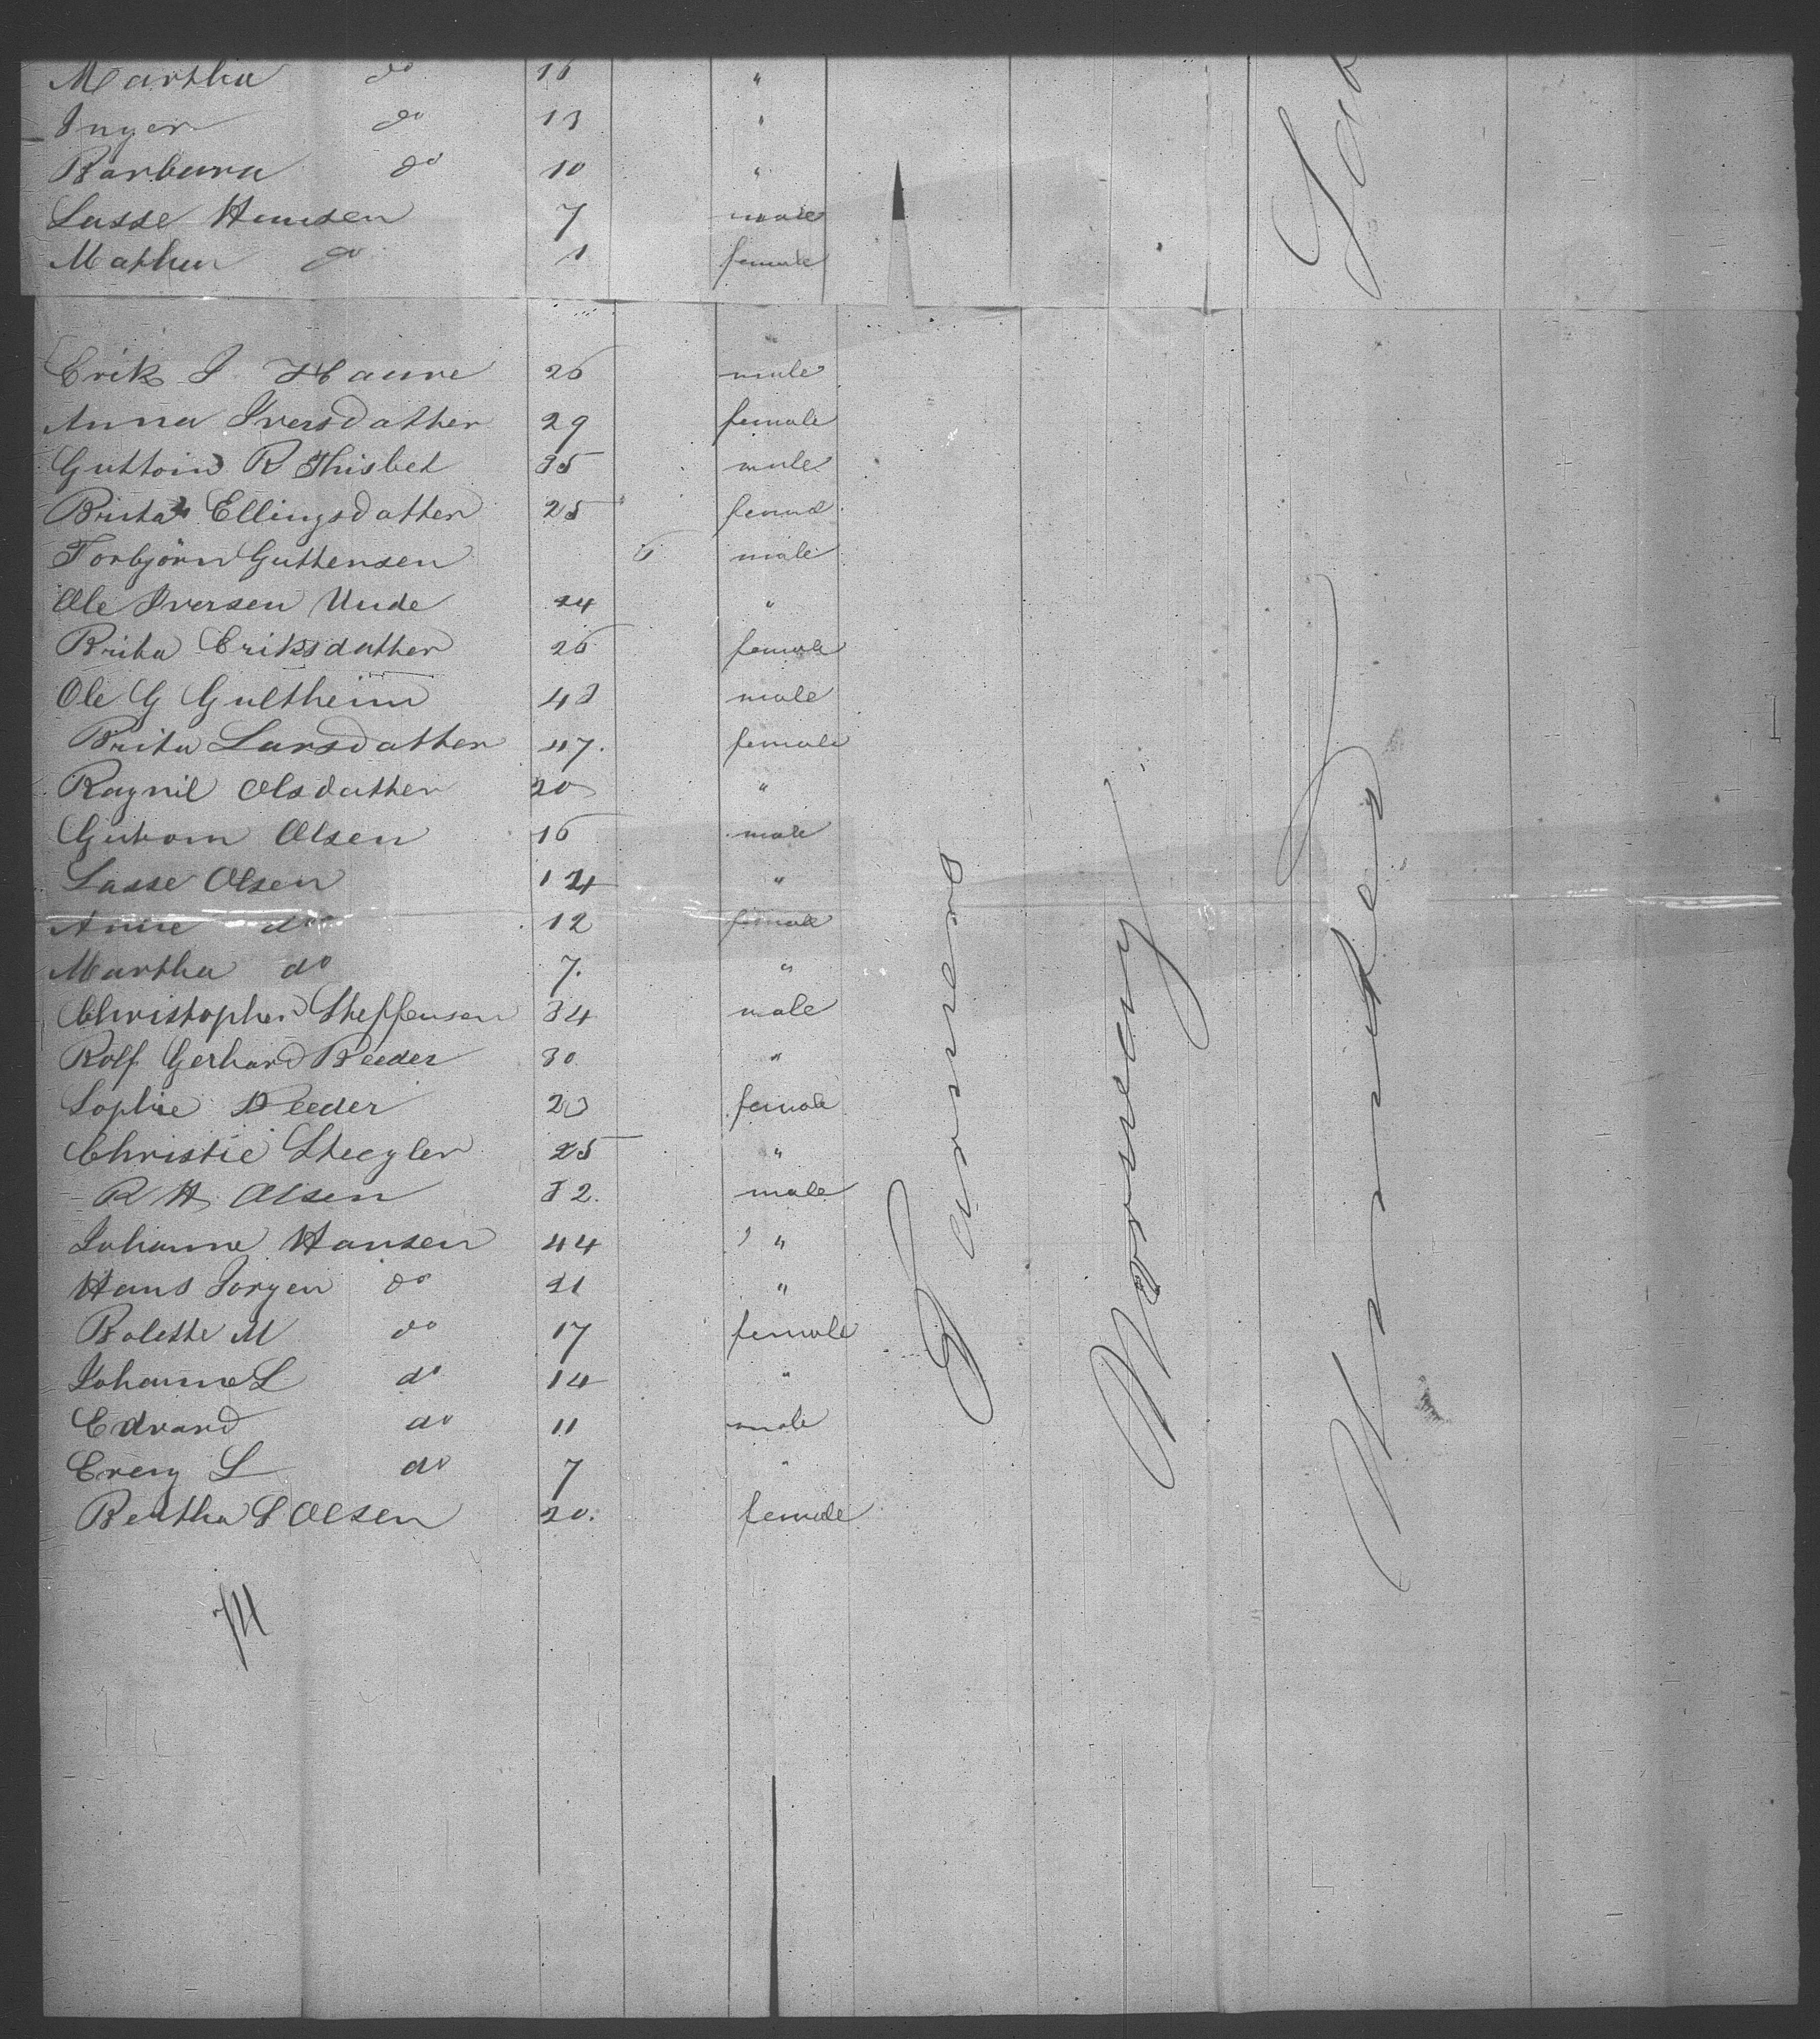 Martha do 16 "
Inger do 13 "
Barbara do 10 "
Lasse Hansen 7 male
Mathea do 1 female
Erik I Haure 26 male
Anna Iversdather 29 female
Guttoin R Thisbet 35 male
Brita Ellingsdather 25 femal
Torbjörn Guttensen 6 male
Ole Iversen Unde 24 "
Brita Eriksdather 26 female
Ole G Gultheim 43 male
Brita Larsdather 47. female
Ragnil Olsdather 20 "
Gutom Olsen 16 male
Lasse Olsen 14 "
Anne do 12 female
Martha do 7. "
Christopher Steffensen 34 male
Rolf Gerhard Reeder 30 "
Sophie Reeder 23 female
Christie Stegler 25 "
R H Olsen 32. male
Johanne Hansen 44 "
Hans Jorgen do 21 "
Bolette M do 17 female
Johanne L do 14 "
Edvard do 11 male
Creny L do 7 "
Bertha S Olsen 20. female
Farmers
Norway
74